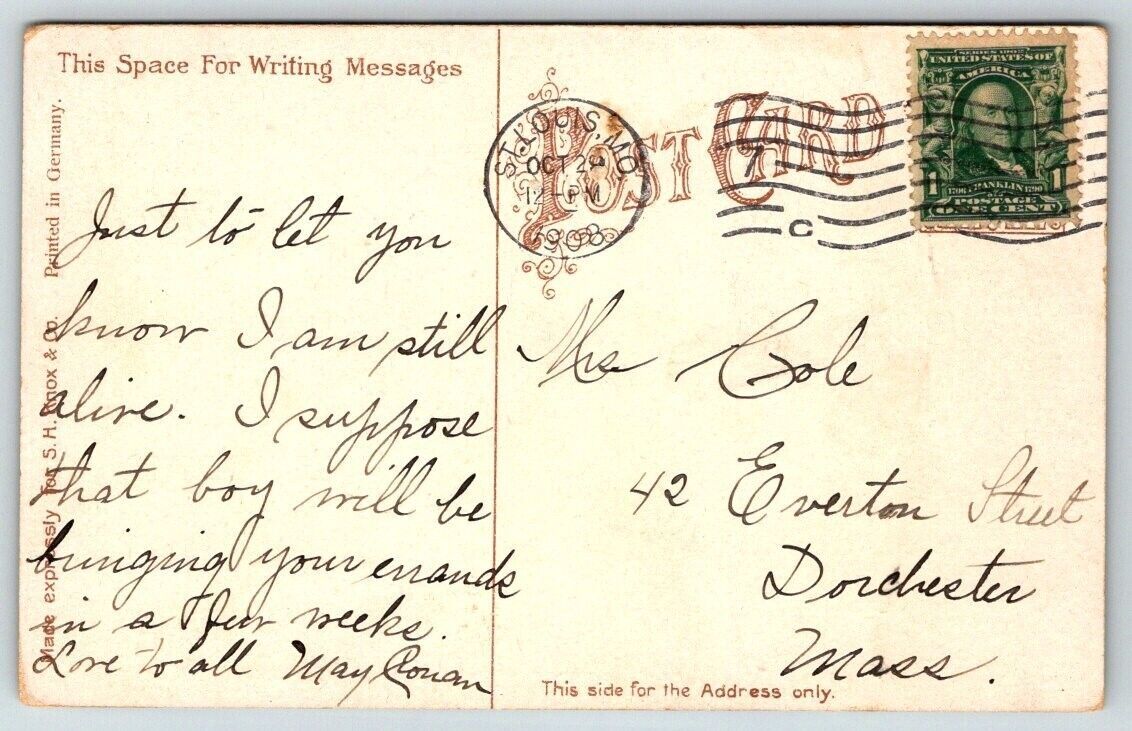 This Space For Writing Messages
Printed in Germany.
Made expressly for S. H. Knox & Co.
Just to let you
know I am still
alive. I suppose
that boy will be
bringing your errands
in a few weeks.
Love to all May
POST CARD
ST. LOUIS, MO
OCT
12 PM
1908
7
C
SERIES 1902
UNITED STATES OF
AMERICA
1706 FRANKLIN 1790
1 1
POSTAGE
ONE CENT
Mrs Cole
42 Everton Street
Dorchester
Mass.
This side for the Address only.